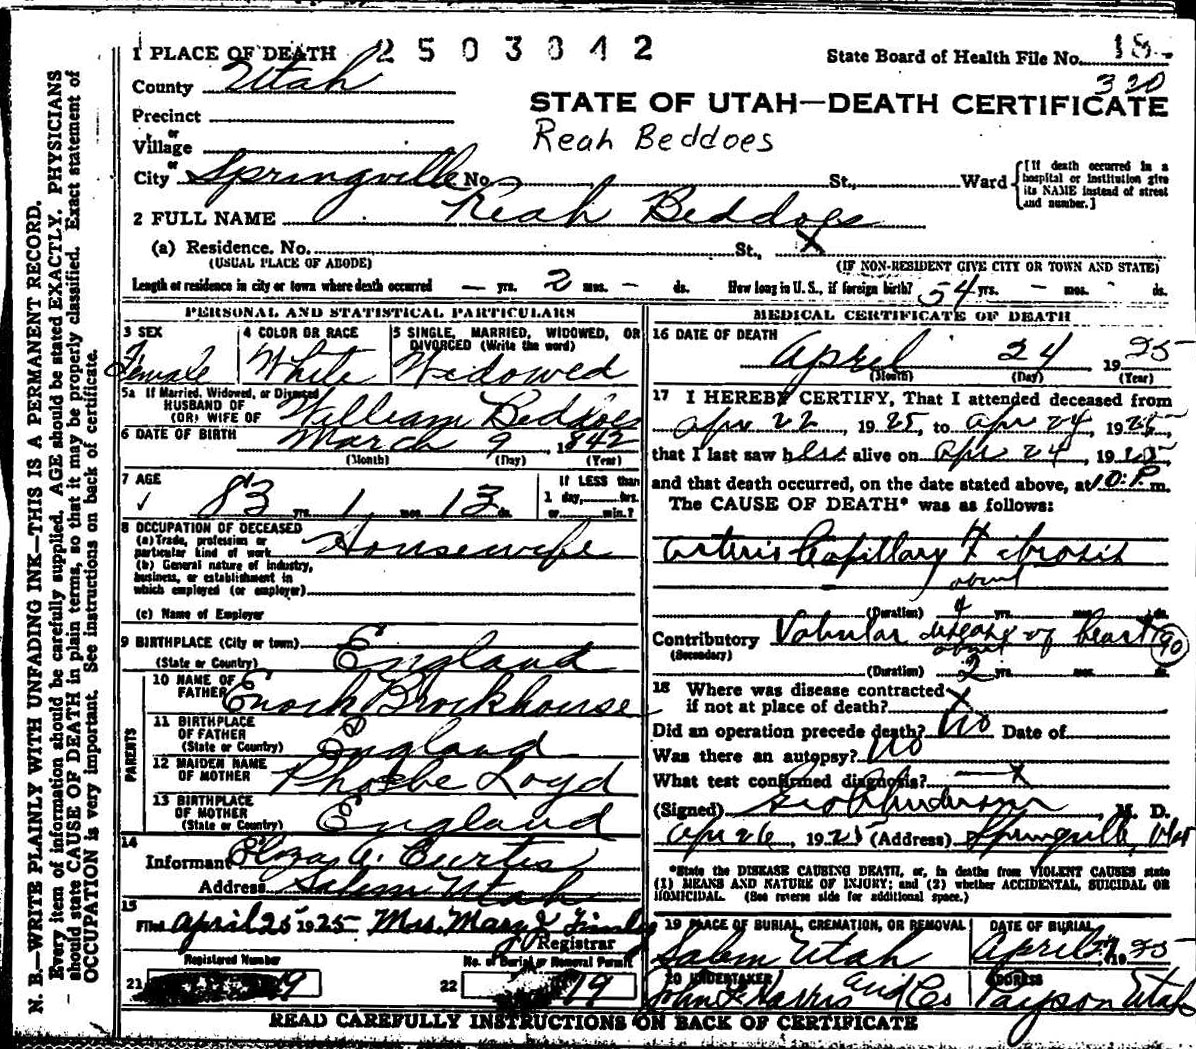 1 PLACE OF DEATH 2503042
State Board of Health File No. 18
320
County Utah
STATE OF UTAH—DEATH CERTIFICATE
Precinct
Reah Beddoes
or
Village
or
City Springville No. St., Ward
[If death occurred in a hospital or institution give its NAME instead of street and number.]
2 FULL NAME Reah Beddoes
(a) Residence. No. St., X
(USUAL PLACE OF ABODE) (IF NON-RESIDENT GIVE CITY OR TOWN AND STATE)
Length of residence in city or town where death occurred — yrs. 2 mos. - ds. How long in U. S., if foreign birth? 54 yrs. - mos. - ds.
PERSONAL AND STATISTICAL PARTICULARS
3 SEX Female
4 COLOR OR RACE White
5 SINGLE, MARRIED, WIDOWED, OR DIVORCED (Write the word) Widowed
5a If Married, Widowed, or Divorced
HUSBAND OF
(OR) WIFE OF William Beddoes
6 DATE OF BIRTH March 9, 1842
(Month) (Day) (Year)
7 AGE
83 yrs. 1 mos. 13 ds.
If LESS than
1 day, hrs.
or min.?
8 OCCUPATION OF DECEASED
(a) Trade, profession or
particular kind of work Housewife
(b) General nature of industry,
business, or establishment in
which employed (or employer)
(c) Name of Employer
9 BIRTHPLACE (City or town)
(State or Country) England
PARENTS
10 NAME OF
FATHER Enoch Brockhouse
11 BIRTHPLACE
OF FATHER
(State or Country) England
12 MAIDEN NAME
OF MOTHER Phoebe Loyd
13 BIRTHPLACE
OF MOTHER
(State or Country) England
14
Informant Eliza A. Curtis
Address Salem Utah
15
Filed April 25 1925 Mrs. Mary J
Registrar
Registered Number
21 19
No. of Burial or Removal Permit
22 19
MEDICAL CERTIFICATE OF DEATH
16 DATE OF DEATH
April 24 1925
(Month) (Day) (Year)
17 I HEREBY CERTIFY, That I attended deceased from
Apr 22, 1925, to Apr 24, 1925,
that I last saw her alive on Apr 24, 1925
and that death occurred, on the date stated above, at 10:P. m.
The CAUSE OF DEATH* was as follows:
Arterio Capillary Fibrosis
about
(Duration) 4 yrs. mos. ds.
Contributory Valvular disease of heart 90
(Secondary) about
(Duration) 2 yrs. mos. ds.
18 Where was disease contracted
if not at place of death? X
Did an operation precede death? No Date of
Was there an autopsy? No
What test confirmed diagnosis? — X
(Signed) Geo Anderson, M. D.
Apr 26, 1925 (Address) Springville, Utah
*State the DISEASE CAUSING DEATH, or, in deaths from VIOLENT CAUSES state
(1) MEANS AND NATURE OF INJURY; and (2) whether ACCIDENTAL, SUICIDAL OR
HOMICIDAL. (See reverse side for additional space.)
19 PLACE OF BURIAL, CREMATION, OR REMOVAL
Salem Utah
DATE OF BURIAL
April 1925
20 UNDERTAKER
John F Harris and Co
ADDRESS
Payson Utah
READ CAREFULLY INSTRUCTIONS ON BACK OF CERTIFICATE
N. B.—WRITE PLAINLY WITH UNFADING INK—THIS IS A PERMANENT RECORD.
Every item of information should be carefully supplied. AGE should be stated EXACTLY. PHYSICIANS
should state CAUSE OF DEATH in plain terms, so that it may be properly classified. Exact statement of
OCCUPATION is very important. See instructions on back of certificate.